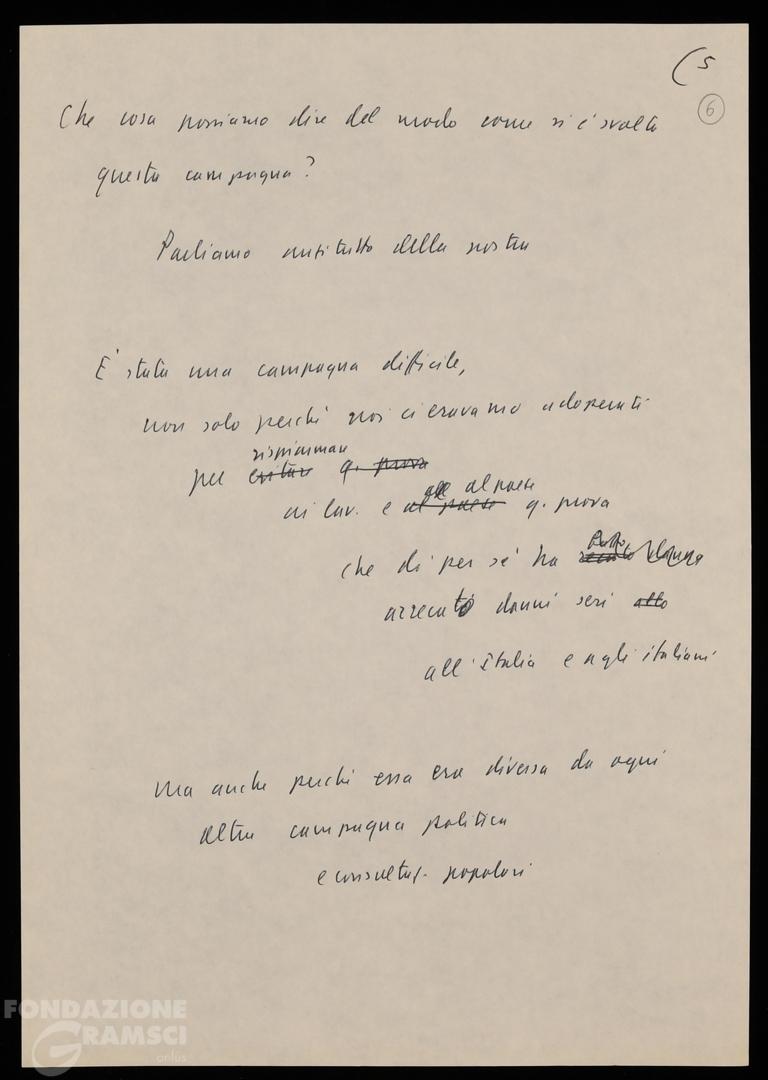 (5
6
Che cosa possiamo dire del modo come si è svolta
questa campagna?
Parliamo anzitutto della nostra
E' stata una campagna difficile,
non solo perché noi ci eravamo adoperati
risparmiare
per evitare q. prova
all al paese
ai lav. e al paese q. prova
che di per sé ha
arrecato danni seri allo
all'Italia e agli italiani
ma anche perché essa era diversa da ogni
altra campagna politica
e consultaz. popolari
FONDAZIONE
GRAMSCI
onlus